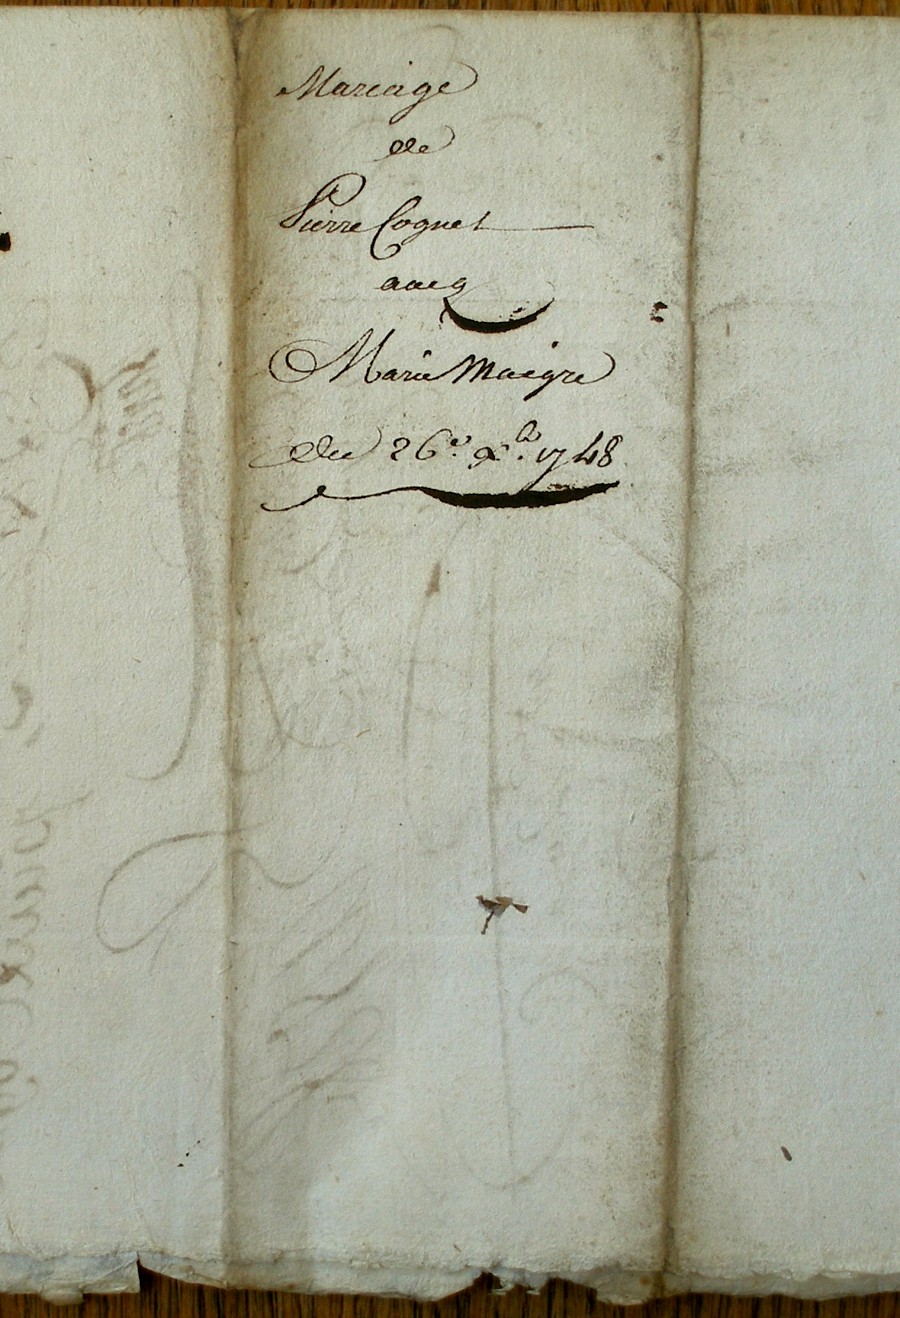 Mariage
de
Pierre Cognet
avec
Marie Maigre
du 26e. xbre. 1748